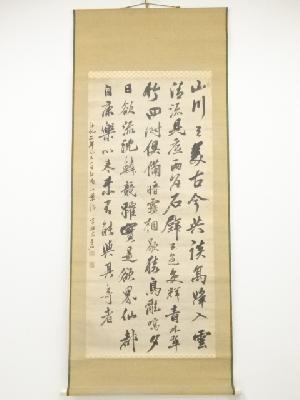 山川之美古今共談高峰入雲
清流見底兩岸石壁五色交輝青林翠
竹四時俱備曉霧將歇猿鳥亂鳴夕
日欲頹沈鱗競躍實是欲界仙都
自康樂以來未有能與其奇者